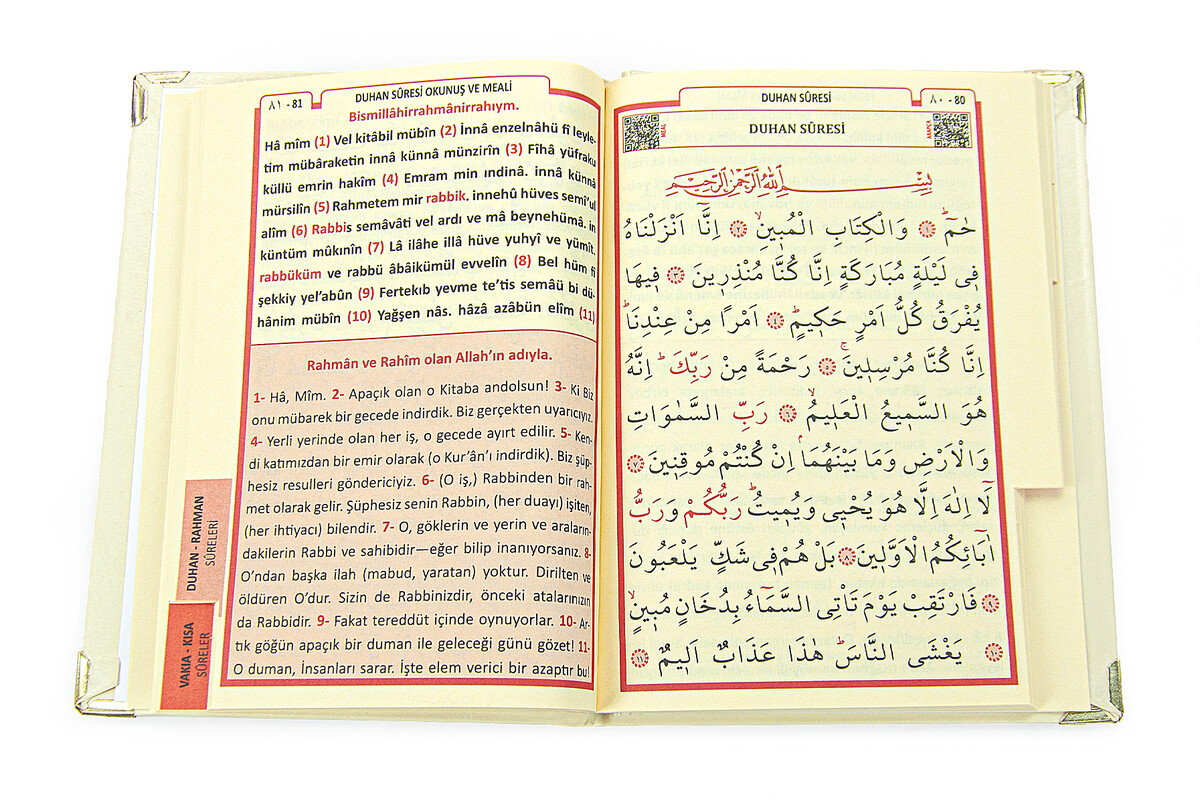 ٨٠ - 80
DUHAN SÛRESİ
MEAL
DUHAN SÛRESİ
بِسْمِ اللّٰهِ الرَّحْمٰنِ الرَّحٖيمِ
حٰمٓ ۚ ﴿١﴾ وَالْكِتَابِ الْمُبٖينِۙ ﴿٢﴾ اِنَّٓا اَنْزَلْنَاهُ
فٖي لَيْلَةٍ مُبَارَكَةٍ اِنَّا كُنَّا مُنْذِرٖينَ ﴿٣﴾ فٖيهَا
يُفْرَقُ كُلُّ اَمْرٍ حَكٖيمٍۚ ﴿٤﴾ اَمْرًا مِنْ عِنْدِنَاۜ
اِنَّا كُنَّا مُرْسِلٖينَۚ ﴿٥﴾ رَحْمَةً مِنْ رَبِّكَۜ اِنَّهُ
هُوَ السَّمٖيعُ الْعَلٖيمُۙ ﴿٦﴾ رَبِّ السَّمٰوَاتِ
وَالْاَرْضِ وَمَا بَيْنَهُمَاۢ اِنْ كُنْتُمْ مُوقِنٖينَ ﴿٧﴾
لَٓا اِلٰهَ اِلَّا هُوَ يُحْيٖي وَيُمٖيتُۜ رَبُّكُمْ وَرَبُّ
اٰبَٓائِكُمُ الْاَوَّلٖينَ ﴿٨﴾ بَلْ هُمْ فٖي شَكٍّ يَلْعَبُونَ
﴿٩﴾ فَارْتَقِبْ يَوْمَ تَأْتِي السَّمَٓاءُ بِدُخَانٍ مُبٖينٍۙ
﴿١٠﴾ يَغْشَى النَّاسَۜ هٰذَا عَذَابٌ اَلٖيمٌ ﴿١١﴾
٨١ - 81
DUHAN SÛRESİ OKUNUŞ VE MEALİ
Bismillâhirrahmânirrahıym.
Hâ mîm (1) Vel kitâbil mübîn (2) İnnâ enzelnâhü fî leyle-
tim mübâraketin innâ künnâ münzirîn (3) Fîhâ yüfraku
küllü emrin hakîm (4) Emram min ındinâ. innâ künnâ
mürsilîn (5) Rahmetem mir rabbik. innehû hüves semî'ul
alîm (6) Rabbis semâvâti vel ardı ve mâ beynehümâ. in
küntüm mûkınîn (7) Lâ ilâhe illâ hüve yuhyî ve yümît.
rabbüküm ve rabbü âbâikümül evvelîn (8) Bel hüm fî
şekkiy yel'abûn (9) Fertekıb yevme te'tis semâü bi dü-
hânim mübîn (10) Yağşen nâs. hâzâ azâbün elîm (11)
Rahmân ve Rahîm olan Allah'ın adıyla.
1- Hâ, Mîm. 2- Apaçık olan o Kitaba andolsun! 3- Ki Biz
onu mübarek bir gecede indirdik. Biz gerçekten uyarıcıyız.
4- Yerli yerinde olan her iş, o gecede ayırt edilir. 5- Ken-
di katımızdan bir emir olarak (o Kur'ân'ı indirdik). Biz şüp-
hesiz resulleri göndericiyiz. 6- (O iş,) Rabbinden bir rah-
met olarak gelir. Şüphesiz senin Rabbin, (her duayı) işiten,
(her ihtiyacı) bilendir. 7- O, göklerin ve yerin ve araların-
dakilerin Rabbi ve sahibidir—eğer bilip inanıyorsanız. 8-
O'ndan başka ilah (mabud, yaratan) yoktur. Dirilten ve
öldüren O'dur. Sizin de Rabbinizdir, önceki atalarınızın
da Rabbidir. 9- Fakat tereddüt içinde oynuyorlar. 10- Ar-
tık göğün apaçık bir duman ile geleceği günü gözet! 11-
O duman, İnsanları sarar. İşte elem verici bir azaptır bu!
DUHAN - RAHMAN
SÛRELERİ
VAKIA - KISA
SÛRELER